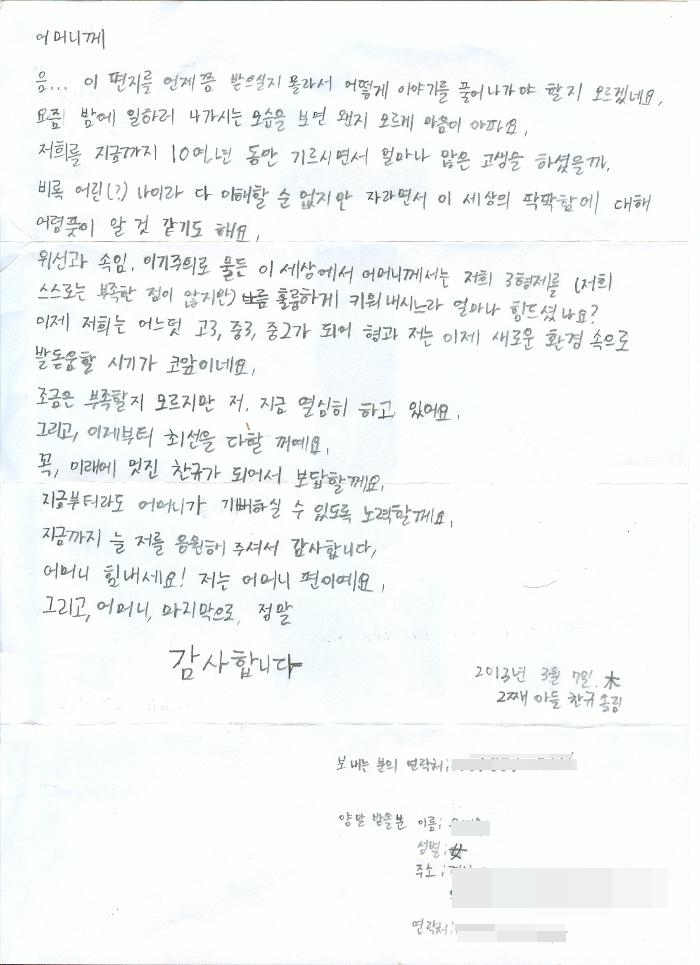 어머니께
음... 이 편지를 언제쯤 받으실지 몰라서 어떻게 이야기를 풀어나가야 할지 모르겠네요.
요즘 밤에 일하러 나가시는 모습을 보면 왠지 모르게 마음이 아파요.
저희를 지금까지 10여년 동안 기르시면서 얼마나 많은 고생을 하셨을까.
비록 어린(?) 나이라 다 이해할 순 없지만 자라면서 이 세상의 팍팍함에 대해
어렴풋이 알 것 같기도 해요.
위선과 속임, 이기주의로 물든 이 세상에서 어머니께서는 저희 3형제를 (저희
스스로는 부족한 점이 많지만) 훌륭하게 키워내시느라 얼마나 힘드셨나요?
이제 저희는 어느덧 고3, 중3, 중2가 되어 형과 저는 이제 새로운 환경 속으로
발돋움할 시기가 코앞이네요.
조금은 부족할지 모르지만 저, 지금 열심히 하고 있어요.
그리고, 이제부터 최선을 다할 꺼예요.
꼭, 미래에 멋진 찬규가 되어서 보답할께요.
지금부터라도 어머니가 기뻐하실 수 있도록 노력할께요.
지금까지 늘 저를 응원해 주셔서 감사합니다.
어머니 힘내세요! 저는 어머니 편이예요.
그리고, 어머니, 마지막으로, 정말
감사합니다
2013년 3월 7일. 木
2째 아들 찬규 올림
보내는 분의 연락처:
양말 받을분 이름:
성별: 女
주소:
연락처: